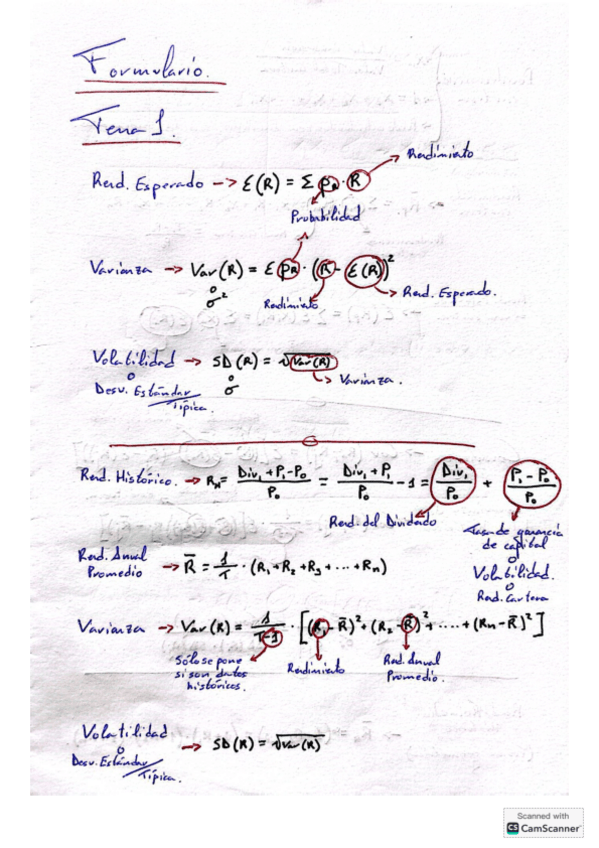 Formulario.
Tema 1.
Rendimiento
Rend. Esperado → E(R) = Σ PR · R
Probabilidad
Varianza → Var(R) = E PR · (R - E(R))²
o
σ²
Rendimiento
Rend. Esperado.
Volatilidad → SD(R) = √Var(R)
o
o
Varianza.
Desv. Estándar
σ
Típica.
Rend. Histórico. → RH = Div₁ + P₁ - P₀ / P₀ = Div₁ + P₁ / P₀ - 1 = Div₁ / P₀ + P₁ - P₀ / P₀
Rend. del Dividendo
Tasa de ganancia
de capital
o
Volatilidad.
o
Rend. Cartera
Rend. Anual
Promedio → R̄ = 1/T · (R₁ + R₂ + R₃ + ... + Rn)
Varianza → Var(R) = 1/T-1 · [(R₁ - R̄)² + (R₂ - R̄)² + ... + (Rn - R̄)²]
Sólo se pone
si son datos
históricos.
Rendimiento
Rend. Anual
Promedio.
Volatilidad
o
→ SD(R) = √Var(R)
Desv. Estándar
Típica.
Scanned with
CS CamScanner